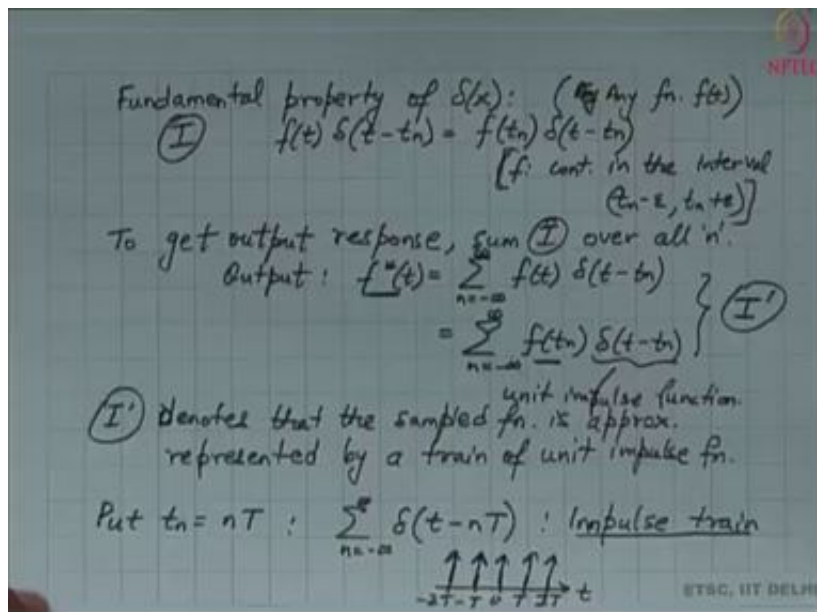 NPTEL
Fundamental property of δ(x): (Any fn. f(t))
Ⓘ f(t) δ(t-tn) = f(tn) δ(t-tn)
[f: cont. in the interval
(tn-ε, tn+ε)]
To get output response, sum Ⓘ over all 'n'.
Output: f*(t) = ∑_{n=-∞}^{∞} f(t) δ(t-tn)
= ∑_{n=-∞}^{∞} f(tn) δ(t-tn) } (I')
unit impulse function.
(I') denotes that the sampled fn. is approx.
represented by a train of unit impulse fn.
Put tn = nT : ∑_{n=-∞}^{∞} δ(t-nT) : Impulse train
-2T -T 0 T 2T t
ETSC, IIT DELHI